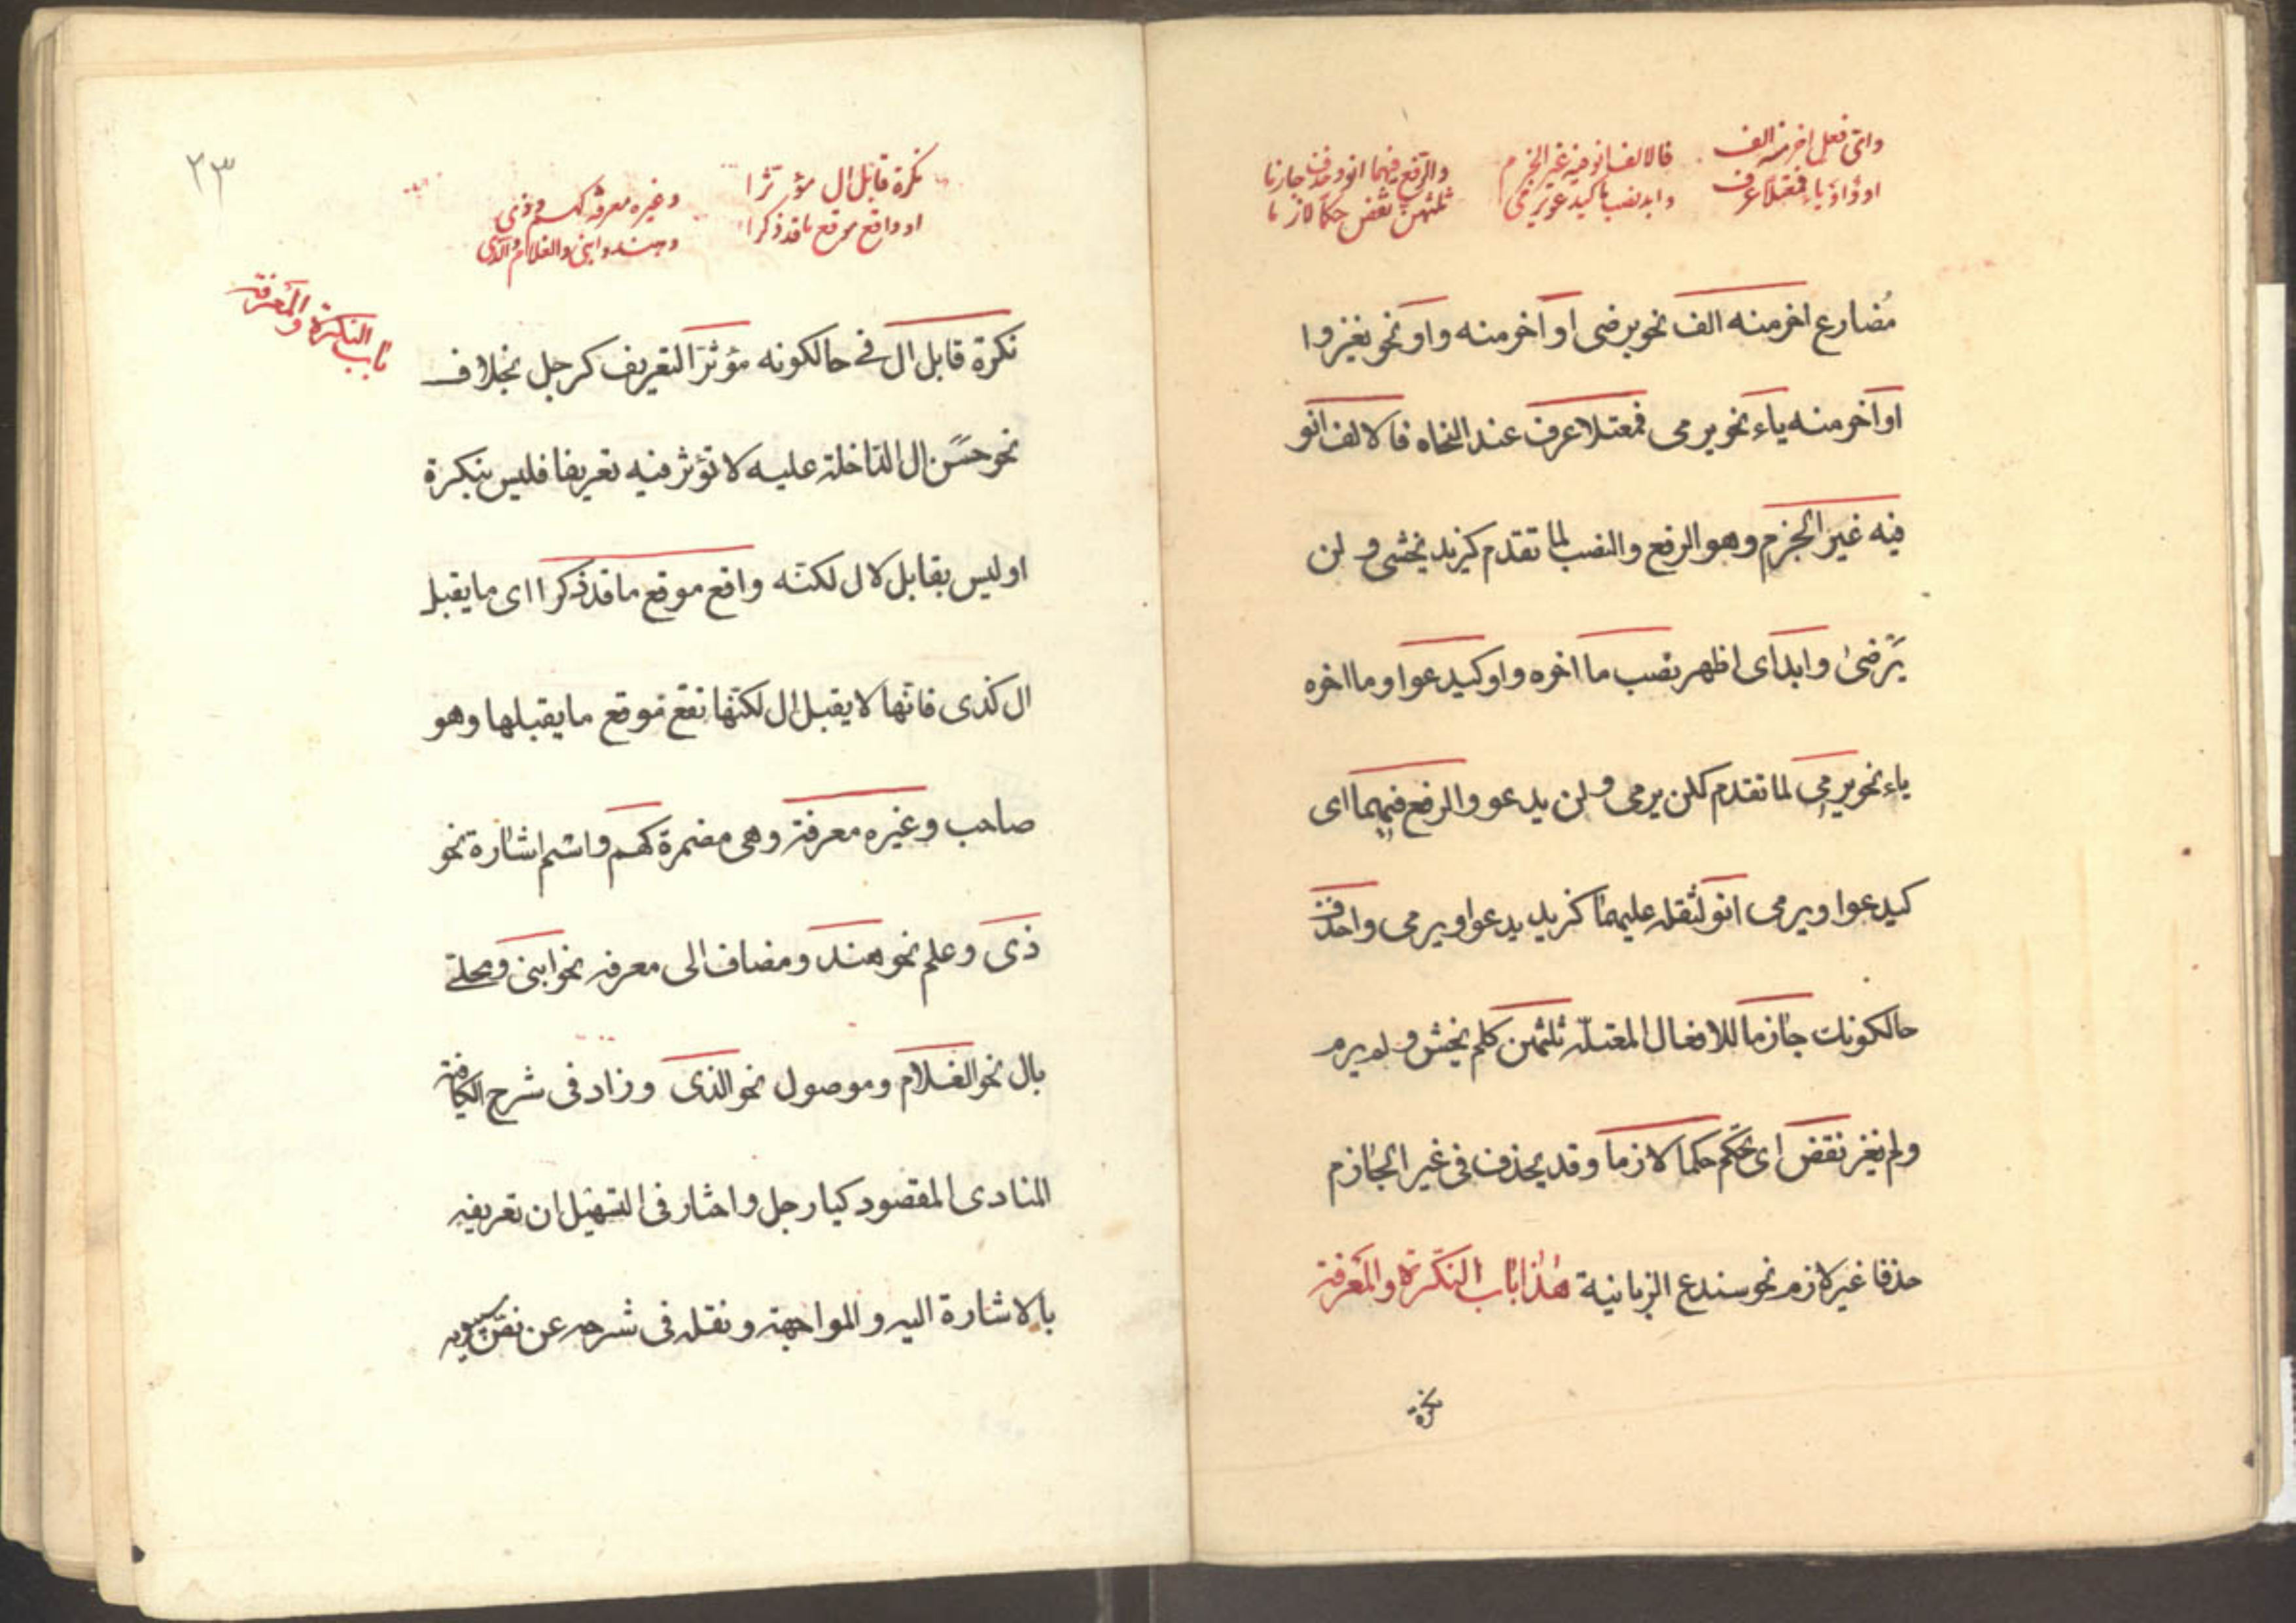 وای فعل اخر منه الف
او واو او یاء فمعتلا عرف
فالالف انو فیه غیر الجزم
وابد نصب ما کیدعو یرمی
والرفع فیهما انو واحذف جازما
ثلثهن تقض حکما لازما
مُضارع اخر منه الف نحو یرضی او آخر منه واو نحو یغزوا
او آخر منه یاء نحو یرمی فمعتلا عرف عند النحاه فالالف انو
فیه غیر الجزم وهو الرفع والنصب لما تقدم کزید یخشی و لن
یَرضیٰ وابد ای اظهر نصب ما اخره واو کیدعوا وما اخره
یاء نحو یرمی لما تقدم کلن یرمی و لن یدعو والرفع فیهما ای
کیدعوا ویرمی انو لثقله علیهما کزید یدعوا ویرمی واحذف
حالکونك جازما للافعال المعتله ثلثهن کلم یخش و لم یرم
ولم یغز تقض ای تحکم حکما لازما وقد یحذف فی غیر الجازم
حذفا غیر لازم نحو سندع الزبانیة هٰذا باب النکرة والمعرفة
نکرة
٢٣
نکرة قابل ال مؤثرا
او واقع موقع ما قد ذکرا
وغیره معرفة کهم وذی
وهند وابنی والغلام والذی
باب النکرة والمعرفة
نکرة قابل ال فی حالکونه مؤثرَ التعریف کرجل بخلاف
نحو حسَن ال الداخلة علیه لا تؤثر فیه تعریفا فلیس بنکرة
او لیس بقابل لال لکنّه واقع موقع ما قد ذکرا ای ما یقبل
ال کذی فانّها لا یقبل ال لکنّها تقع موقع ما یقبلها وهو
صاحب وغیره معرفة وهی مضمرة کهم واسم اشارة نحو
ذی وعلم نحو هند ومضاف الی معرفه نحو ابنی ومحلی
بال نحو الغلام وموصول نحو الذی وزاد فی شرح الکافیة
المنادی المقصود کیا رجل واختار فی التسهیل ان تعریفه
بالاشارة الیه والمواجهة ونقله فی شرحه عن نصّ سیبویه